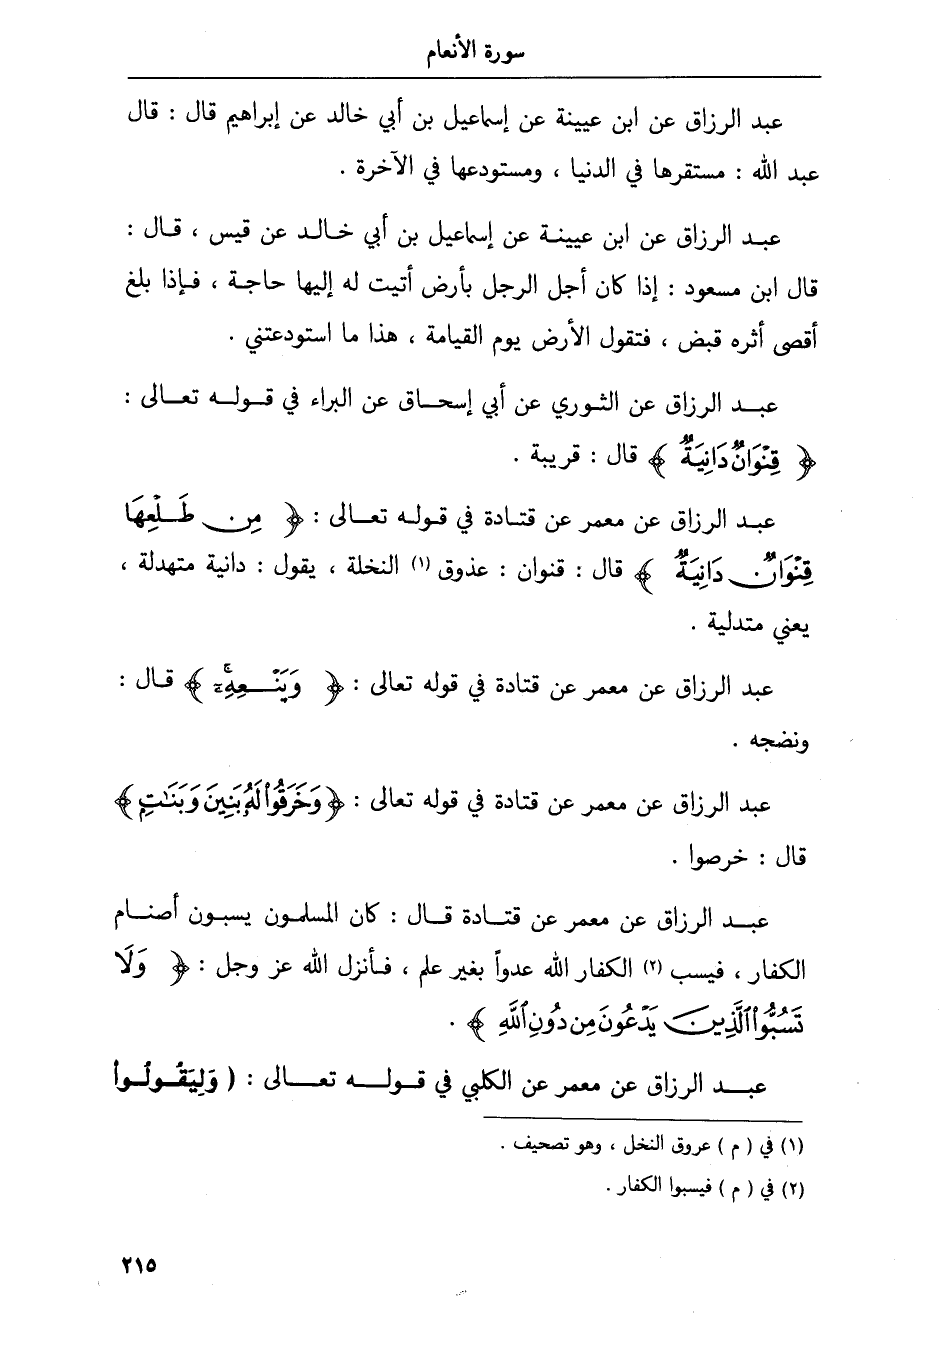 سورة الأنعام
عبد الرزاق عن ابن عيينة عن إسماعيل بن أبي خالد عن إبراهيم قال : قال
عبد الله : مستقرها في الدنيا ، ومستودعها في الآخرة .
عبد الرزاق عن ابن عيينة عن إسماعيل بن أبي خالد عن قيس ، قال :
قال ابن مسعود : إذا كان أجل الرجل بأرض أتيت له إليها حاجة ، فإذا بلغ
أقصى أثره قبض ، فتقول الأرض يوم القيامة ، هذا ما استودعتني .
عبد الرزاق عن الثوري عن أبي إسحاق عن البراء في قوله تعالى :
﴿ قِنْوَانٌ دَانِيَةٌ ﴾ قال : قريبة .
عبد الرزاق عن معمر عن قتادة في قوله تعالى : ﴿ مِن طَلْعِهَا
قِنْوَانٌ دَانِيَةٌ ﴾ قال : قنوان : عذوق (١) النخلة ، يقول : دانية متهدلة ،
يعني متدلية .
عبد الرزاق عن معمر عن قتادة في قوله تعالى : ﴿ وَيَنْعِهِۦٓ ﴾ قال :
ونضجه .
عبد الرزاق عن معمر عن قتادة في قوله تعالى : ﴿ وَخَرَقُوا۟ لَهُۥ بَنِينَ وَبَنَٰتٍ ﴾
قال : خرصوا .
عبد الرزاق عن معمر عن قتادة قال : كان المسلمون يسبون أصنام
الكفار ، فيسب (٢) الكفار الله عدواً بغير علم ، فأنزل الله عز وجل : ﴿ وَلَا
تَسُبُّوا۟ ٱلَّذِينَ يَدْعُونَ مِن دُونِ ٱللَّهِ ﴾ .
عبد الرزاق عن معمر عن الكلبي في قوله تعالى : ( وَلِيَقُولُوا
(١) في ( م ) عروق النخل ، وهو تصحيف .
(٢) في ( م ) فيسبوا الكفار .
٢١٥